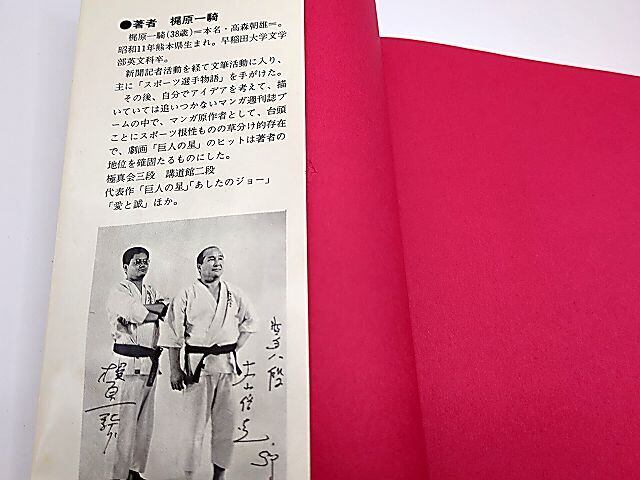 ●著者 梶原一騎
梶原一騎(38歳)=本名・高森朝雄=。
昭和11年熊本県生まれ。早稲田大学文学
部英文科卒。
新聞記者活動を経て文筆活動に入り、
主に「スポーツ選手物語」を手がけた。
その後、自分でアイデアを考えて、描
いていては追いつかないマンガ週刊誌ブ
ームの中で、マンガ原作者として、台頭
ことにスポーツ根性ものの草分け的存在
で、劇画「巨人の星」のヒットは著者の
地位を確固たるものにした。
極真会三段 講道館二段
代表作「巨人の星」「あしたのジョー」
「愛と誠」ほか。
梶原一騎